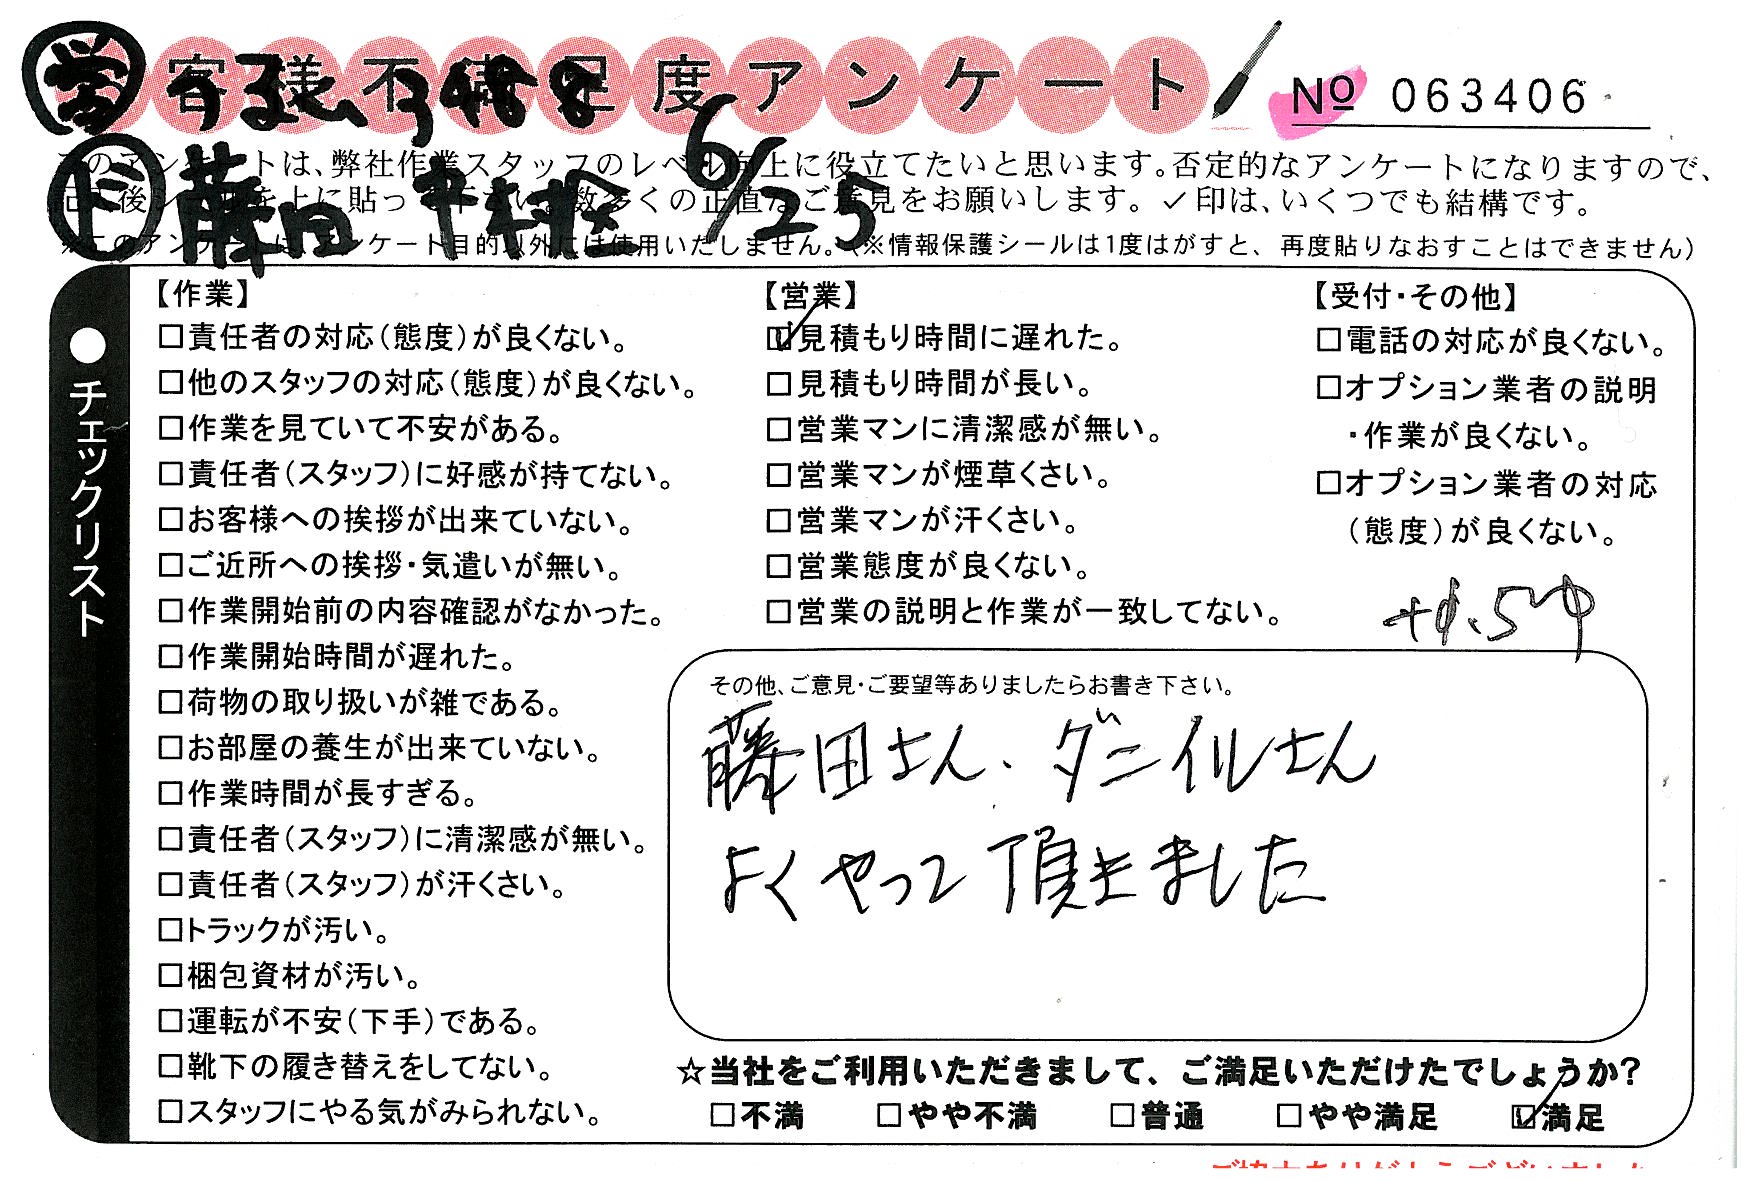 お客様不満足度アンケート
No 063406
6/25
藤田
このアンケートは、弊社作業スタッフのレベル向上に役立てたいと思います。否定的なアンケートになりますので、
後シールを上に貼って下さい。数多くの正直なご意見をお願いします。✓印は、いくつでも結構です。
※このアンケートは、アンケート目的以外には使用いたしません。(※情報保護シールは1度はがすと、再度貼りなおすことはできません)
●チェックリスト
【作業】
□責任者の対応(態度)が良くない。
□他のスタッフの対応(態度)が良くない。
□作業を見ていて不安がある。
□責任者(スタッフ)に好感が持てない。
□お客様への挨拶が出来ていない。
□ご近所への挨拶・気遣いが無い。
□作業開始前の内容確認がなかった。
□作業開始時間が遅れた。
□荷物の取り扱いが雑である。
□お部屋の養生が出来ていない。
□作業時間が長すぎる。
□責任者(スタッフ)に清潔感が無い。
□責任者(スタッフ)が汗くさい。
□トラックが汚い。
□梱包資材が汚い。
□運転が不安(下手)である。
□靴下の履き替えをしてない。
□スタッフにやる気がみられない。
【営業】
☑見積もり時間に遅れた。
□見積もり時間が長い。
□営業マンに清潔感が無い。
□営業マンが煙草くさい。
□営業マンが汗くさい。
□営業態度が良くない。
□営業の説明と作業が一致してない。
【受付・その他】
□電話の対応が良くない。
□オプション業者の説明
・作業が良くない。
□オプション業者の対応
(態度)が良くない。
その他、ご意見・ご要望等ありましたらお書き下さい。
藤田さん、ダニイルさん
よくやって頂きました
☆当社をご利用いただきまして、ご満足いただけたでしょうか?
□不満 □やや不満 □普通 □やや満足 ☑満足